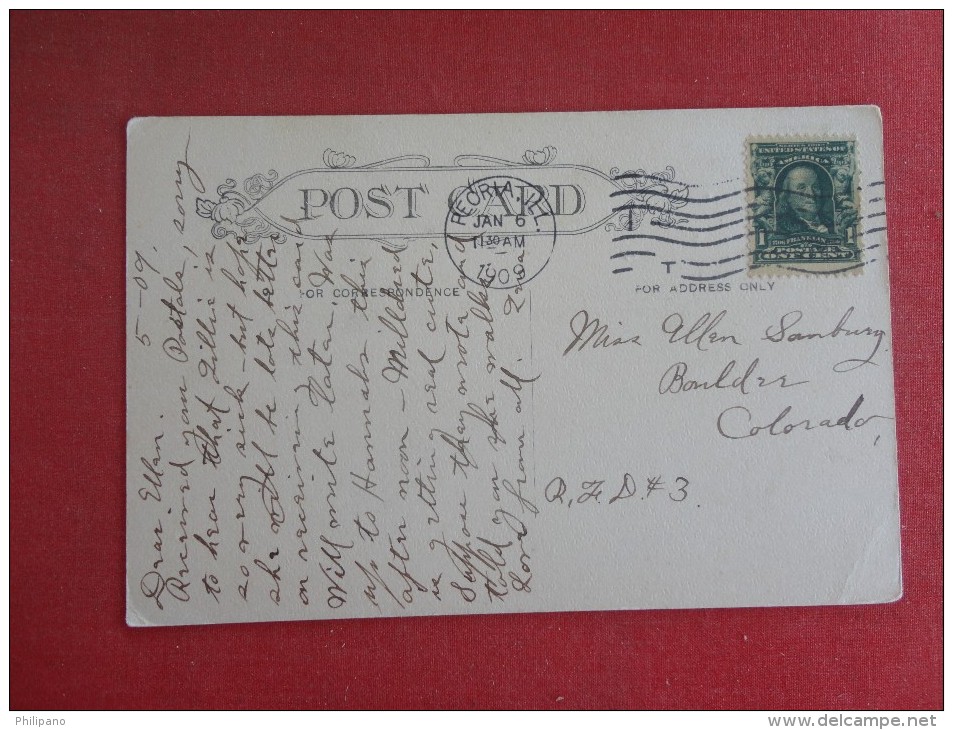 POST CARD
FOR CORRESPONDENCE
FOR ADDRESS ONLY
PEORIA, ILL.
JAN 6
11 30 AM
1909
T
UNITED STATES OF
AMERICA
1
1
FRANKLIN
POSTAGE
ONE CENT
Miss Ellen Sanbury
Boulder
Colorado,
R.F.D. #3
5-09.
Dear Ellen.
Received your Postale, sorry
to hear that Lillie is
so very sick - but hope
she will be lots better
on receiving this card
Will write later, Was
up to Hannahs this
after noon - Milldred
is getting real cute,
Suppose they wrote and
told you she walked
Love from all.
Philipano
www.delcampe.net